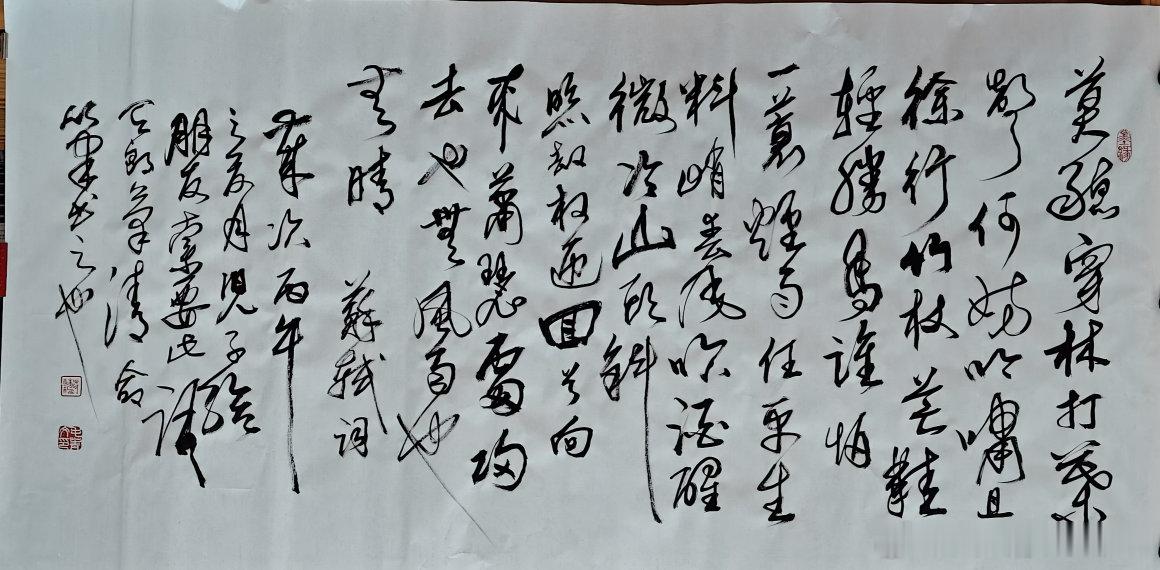 莫聽穿林打葉
聲何妨吟嘯且
徐行竹杖芒鞋
輕勝馬誰怕
一蓑煙雨任平生
料峭春風吹酒醒
微冷山頭斜
照却相迎回首向
來蕭瑟處歸
去也無風雨也
無晴 蘇軾詞
歲次丙午
之月子
朋友索要此詞
清
筆書之也